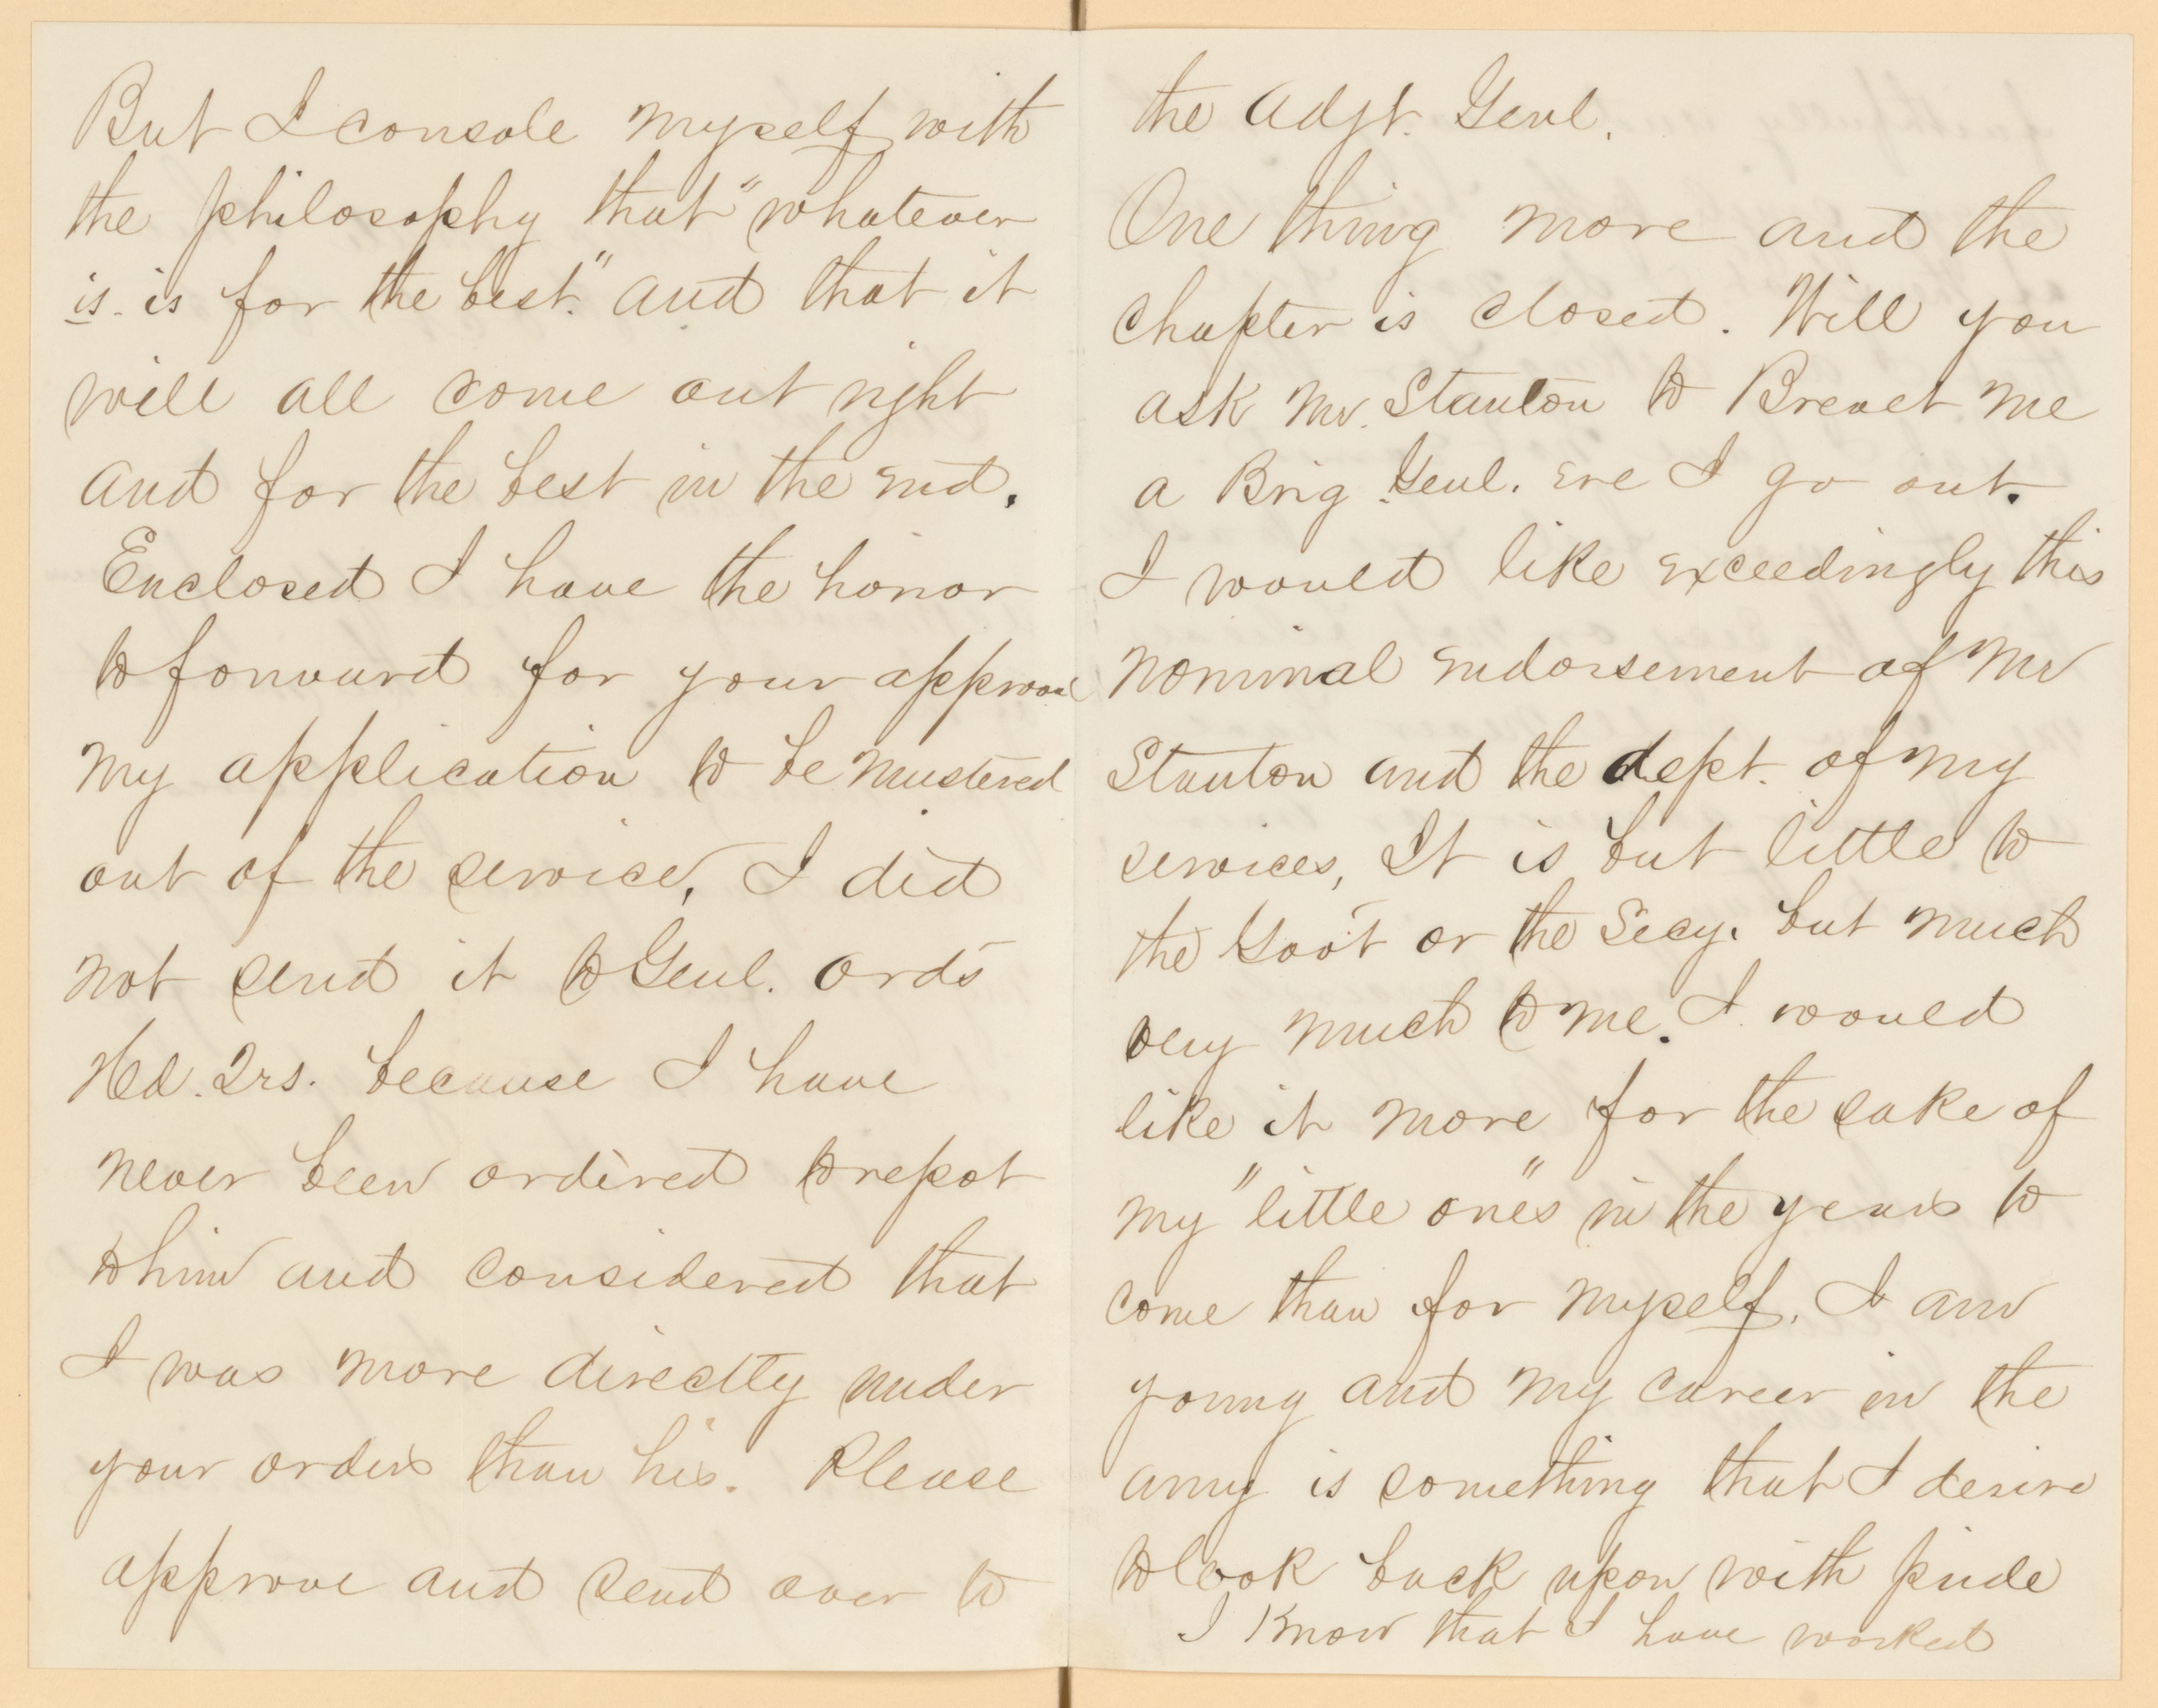 But I console myself with
the philosophy that "whatever
is. is for the best." and that it
will all come out right
and for the best in the end.
Enclosed I have the honor
to forward for your approval
my application to be mustered
out of the service, I did
not send it to Genl. Ord's
Hd. Qrs. because I have
never been ordered to repot
to him and considered that
I was more directly under
your orders than his. Please
approve and send over to
the Adjt. Genl.
One thing more and the
chapter is closed. Will you
ask Mr. Stanton to Brevet me
a Brig. Genl. ere I go out.
I would like exceedingly this
nominal endorsement of Mr
Stanton and the dept. of my
services, It is but little to
the Gov't or the Secy. but much
very much to me. I would
like it more for the sake of
my "little one's" in the years to
come than for myself. I am
young and my career in the
army is something that I desire
to look back upon with pride
I know that I have worked